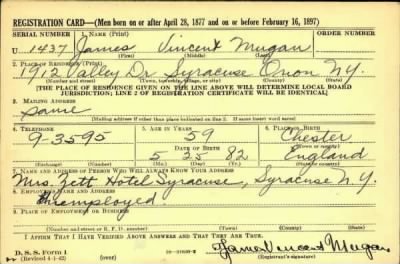 REGISTRATION CARD—(Men born on or after April 28, 1877 and on or before February 16, 1897)
SERIAL NUMBER 1. NAME (Print) ORDER NUMBER
U 1437 James Vincent Mugan
(First) (Middle) (Last)
2. PLACE OF RESIDENCE (Print)
1912 Valley Dr Syracuse Onon N.Y.
(Number and street) (Town, township, village, or city) (County) (State)
[THE PLACE OF RESIDENCE GIVEN ON THE LINE ABOVE WILL DETERMINE LOCAL BOARD
JURISDICTION; LINE 2 OF REGISTRATION CERTIFICATE WILL BE IDENTICAL]
3. MAILING ADDRESS
Same
(Mailing address if other than place indicated on line 2. If same insert word same)
4. TELEPHONE 5. AGE IN YEARS 6. PLACE OF BIRTH
9-3595 59 Chester
DATE OF BIRTH (Town or county)
5 25 82 England
(Exchange) (Number) (Mo.) (Day) (Yr.) (State or country)
7. NAME AND ADDRESS OF PERSON WHO WILL ALWAYS KNOW YOUR ADDRESS
Mrs. Zett Hotel Syracuse, Syracuse N.Y.
8. EMPLOYER'S NAME AND ADDRESS
Unemployed
9. PLACE OF EMPLOYMENT OR BUSINESS
(Number and street or R. F. D. number) (Town) (County) (State)
I AFFIRM THAT I HAVE VERIFIED ABOVE ANSWERS AND THAT THEY ARE TRUE.
D. S. S. Form 1
(Revised 4-1-42) (over)
James Vincent Mugan
(Registrant's signature)